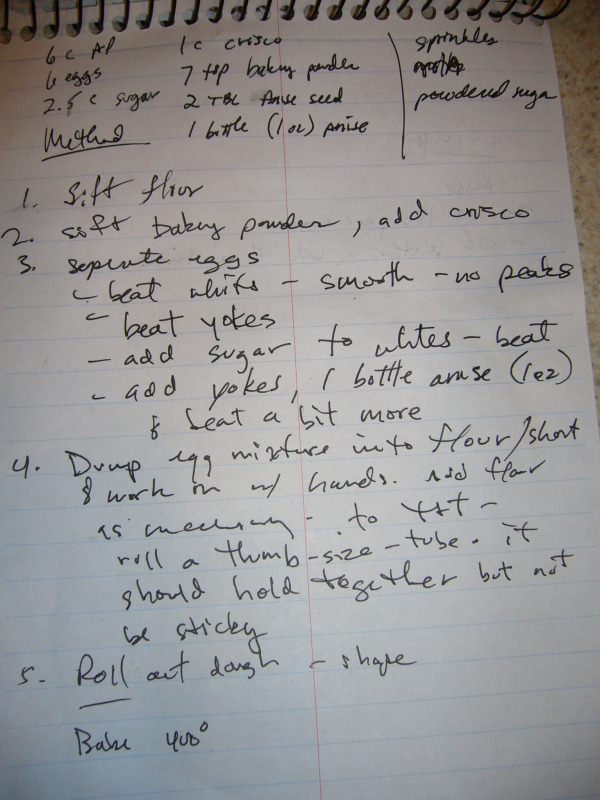 6 c AP 1 c crisco sprinkles
6 eggs 7 tsp baking powder
2.5 c sugar 2 TBL Anise seed powdered sugar
Method 1 bottle (1 oz) Anise
1. Sift flour
2. sift baking powder, add crisco
3. seperate eggs
- beat whites - smooth - no peaks
- beat yokes
- add sugar to whites - beat
- add yokes, 1 bottle anise (1 oz)
& beat a bit more
4. Dump egg mixture into flour/short
& work on w/ hands. Add flour
as necessary - to test -
roll a thumb-size-tube. it
should hold together but not
be sticky
5. Roll out dough - shape
Bake 400°